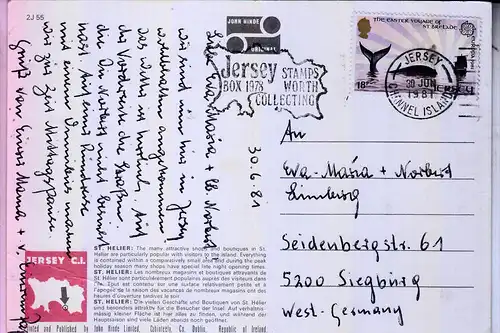 2J 55
JOHN HINDE
ORIGINAL
THE EASTER VOYAGE OF
ST. BRELADE
Jersey STAMPS
BOX 1978 WORTH
COLLECTING
JERSEY
30 JUN
1981
CHANNEL ISLANDS
18
30.6.81
Liebe Eva-Maria + lb. Norbert!
wir sind nun hier in Jersey
wohlbehalten angekommen
Das Wetter ist herrlich. Auf
der Vorderseite die Straßen
die Du Norbert nicht kennst
hast. Auf einer Rundreise
mit einem Omnibus machen
wir zur Zeit Mittagspause.
Gruß von Eurer Mama + v.
An
Eva-Maria + Norbert
Limberg
Seidenbergstr. 61
5200 Siegburg
West-Germany
JERSEY C.I.
ST. HELIER: The many attractive shops and boutiques in St.
Helier are particularly popular with visitors to the island. Everything
is contained within a comparatively small area and during the peak
holiday season many shops have special late night opening times.
ST. HELIER: Les nombreux magasins et boutiques attrayants de
St. Hélier sont particulièrement populaires auprès des visiteurs dans
l'île. Tout est contenu sur une surface relativement petite et à
l'apogée de la saison des vacances de nombreux magasins ont des
heures d'ouverture tardives le soir.
ST. HELIER: Die vielen Geschäfte und Boutiquen in St. Helier
sind besonders attraktiv für die Besucher der Insel. Auf verhältnis-
mässig kleiner Fläche ist hier alles zu finden, und während der
Hauptsaison sind viele Läden abends noch geöffnet.
Printed and Published by John Hinde Limited, Cabinteely, Co. Dublin, Republic of Ireland